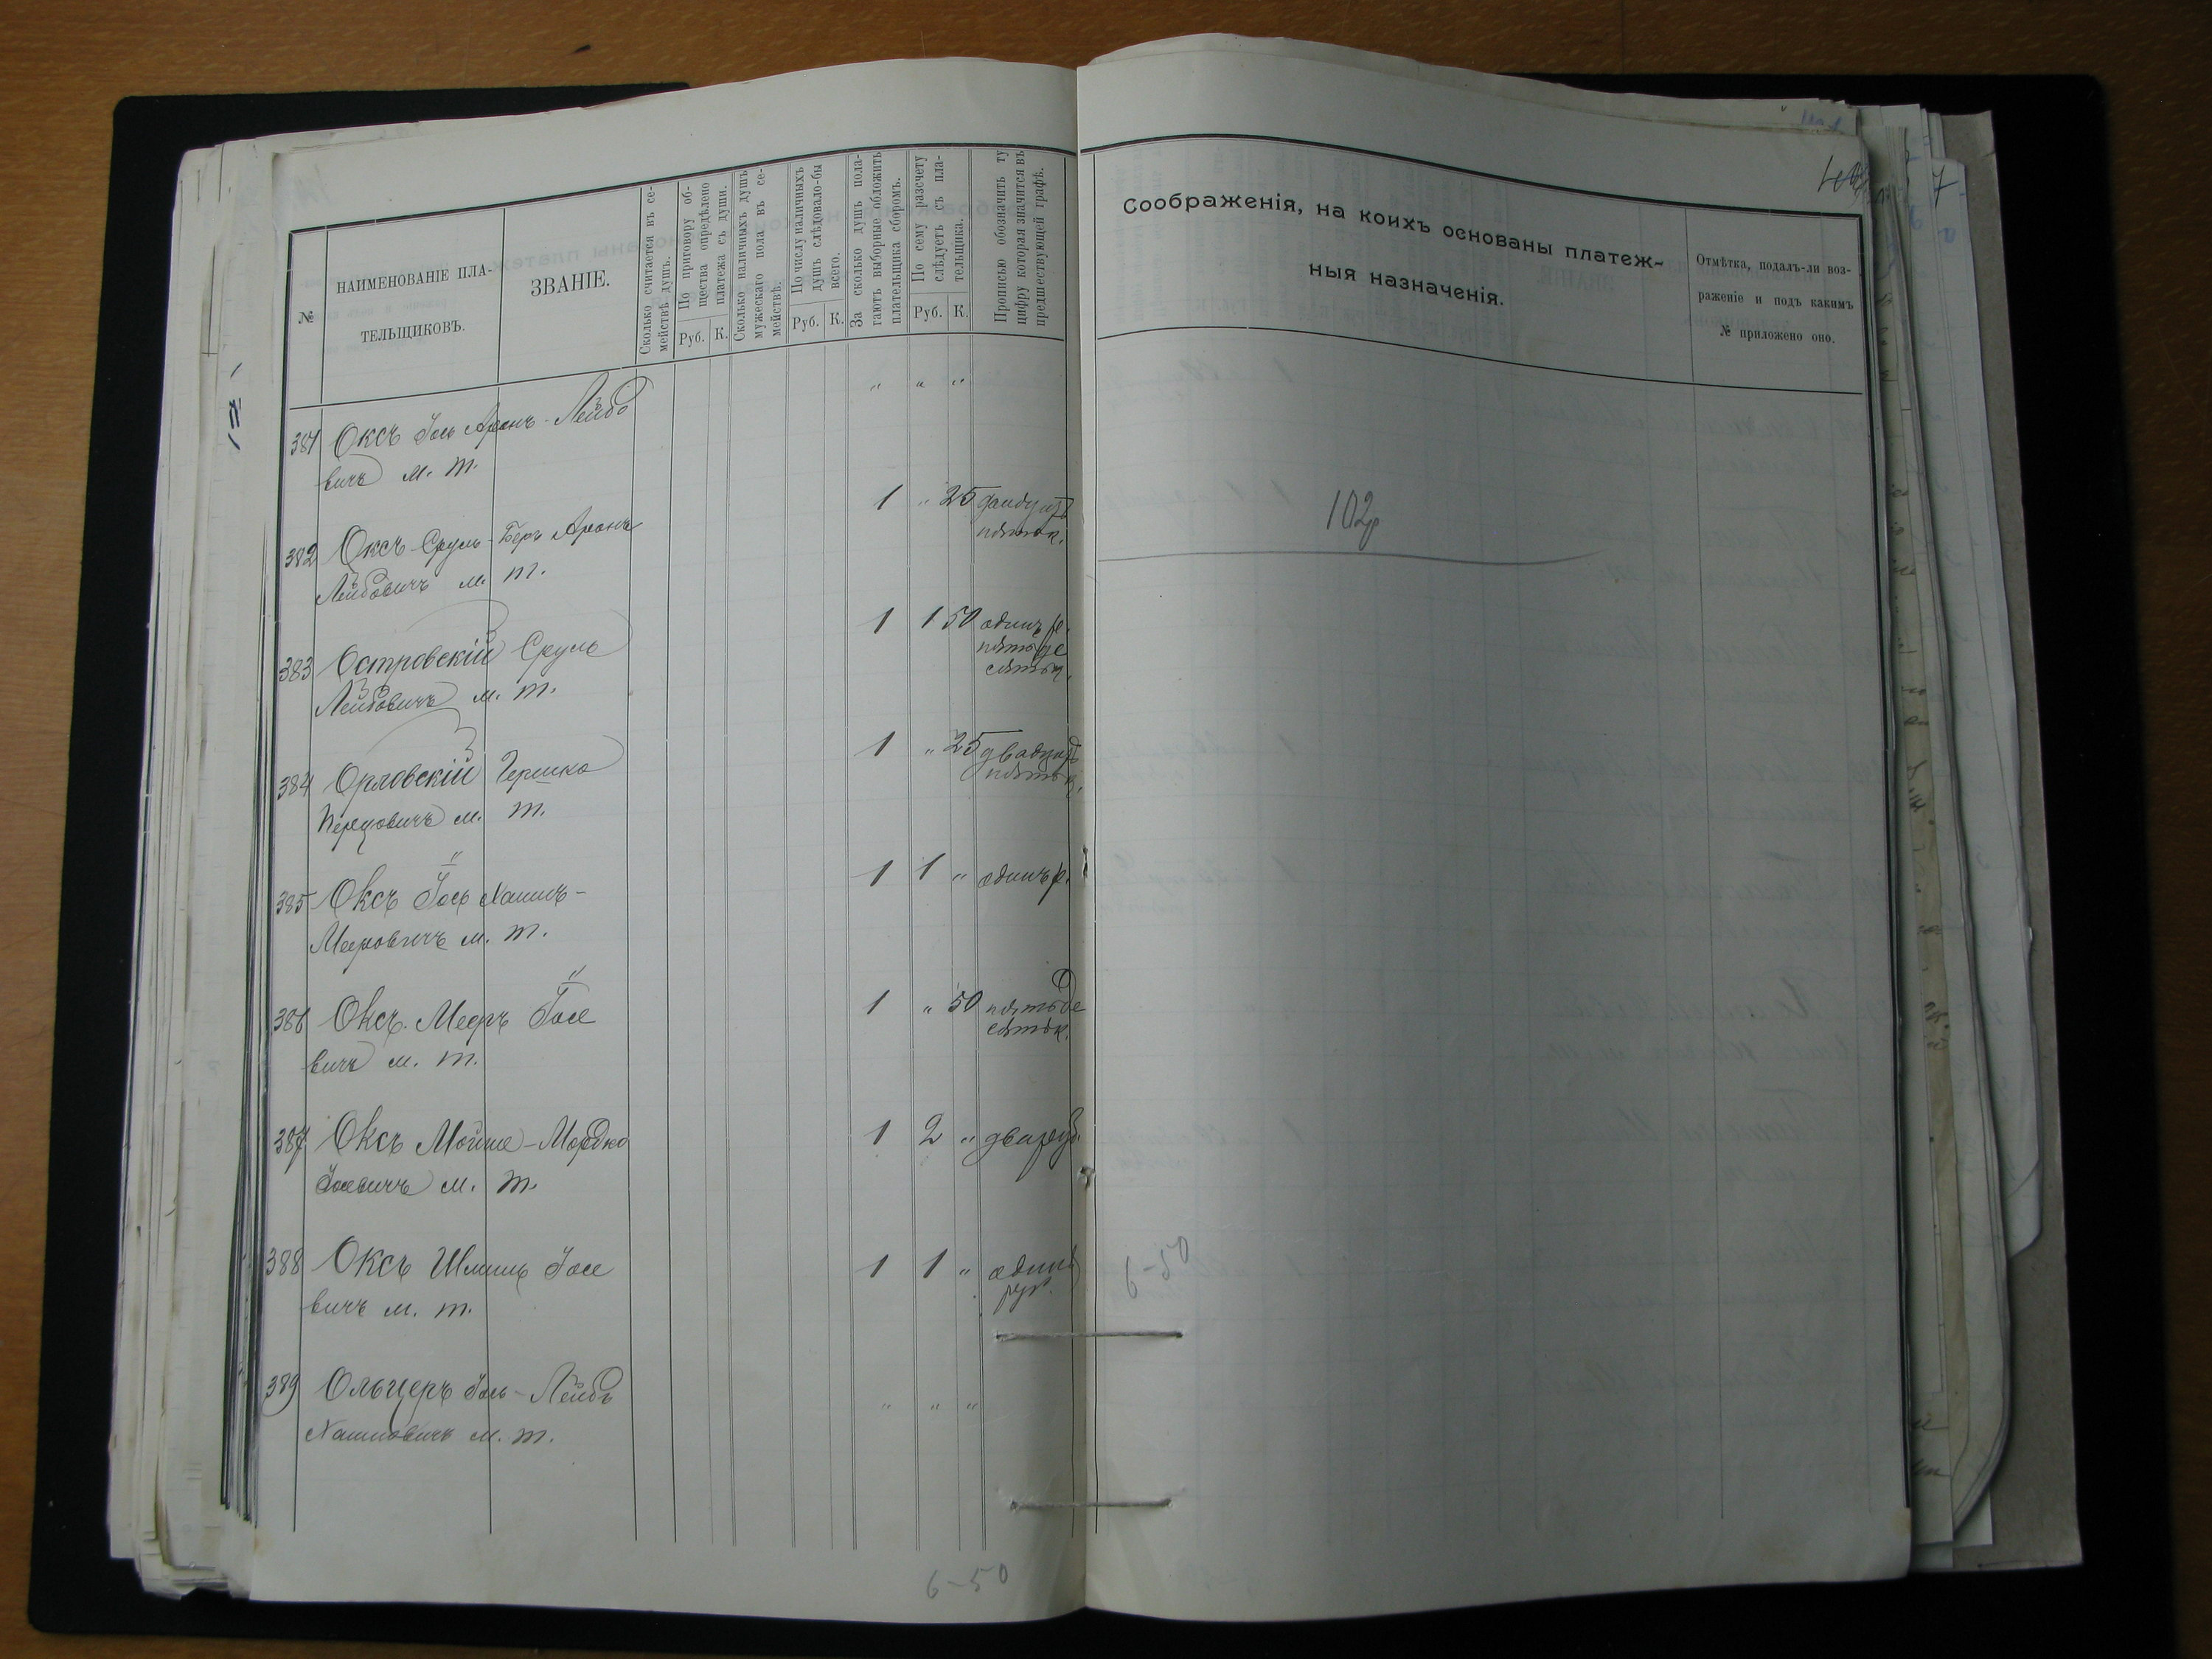 №
НАИМЕНОВАНІЕ ПЛА-
ТЕЛЬЩИКОВЪ.
ЗВАНІЕ.
Сколько считается въ се-
мействѣ душъ.
По приговору об-
щества опредѣлено
платежа съ души.
Руб. К.
Сколько наличныхъ душъ
мужескаго пола въ се-
мействѣ.
По числу наличныхъ
душъ слѣдовало-бы
всего.
Руб. К.
За сколько душъ пола-
гаютъ выборные обложить
плательщика сборомъ.
По сему разсчету
слѣдуетъ съ пла-
тельщика.
Руб. К.
Прописью обозначить ту
цифру которая значится въ
предшествующей графѣ.
381 Оксъ Аронъ-Лейбо
вичъ м. т. " " "
382 Оксъ Сруль-Беръ Аронъ
Лейбовичъ м. т. 1 " 25
383 Островскій Сруль
Лейбовичъ м. т. 1 1 50 одинъ р.
пятьде
сятъ к.
384 Орловскій Гершко
Перцовичъ м. т. 1 " 25 двадцать
пять к.
385 Оксъ Іось Хаимъ-
Мееровичъ м. т. 1 1 " одинъ р.
386 Оксъ Мееръ Іосе
вичъ м. т. 1 " 50 пятьде
сятъ к.
387 Оксъ Мойше-Мордко
Іосевичъ м. т. 1 2 " два руб.
388 Оксъ Іосе
вичъ м. т. 1 1 " одинъ
руб.
389 Ольцеръ Лейбъ
Хаимовичъ м. т. " " "
6-50
Соображенія, на коихъ основаны платеж-
ныя назначенія.
Отмѣтка, подалъ-ли воз-
раженіе и подъ какимъ
№ приложено оно.
102
6-50